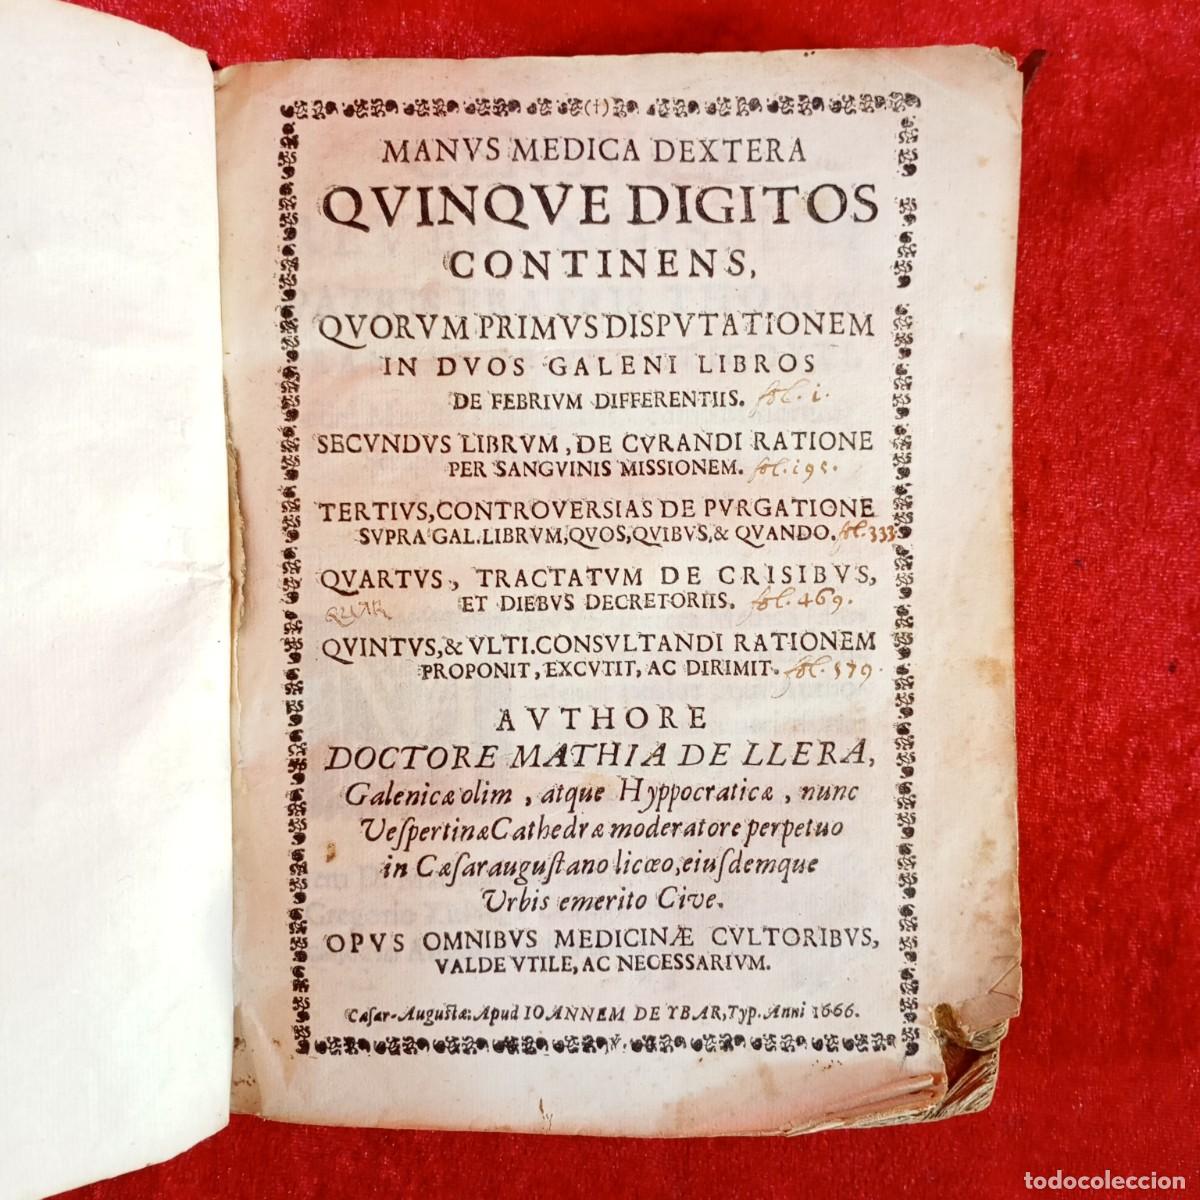 (†)
MANVS MEDICA DEXTERA
QVINQVE DIGITOS
CONTINENS,
QVORVM PRIMVS DISPVTATIONEM
IN DVOS GALENI LIBROS
DE FEBRIVM DIFFERENTIIS. fol. 1.
SECVNDVS LIBRVM, DE CVRANDI RATIONE
PER SANGVINIS MISSIONEM. fol. 195.
TERTIVS, CONTROVERSIAS DE PVRGATIONE
SVPRA GAL. LIBRVM, QVOS, QVIBVS, & QVANDO. fol. 333
QVARTVS, TRACTATVM DE CRISIBVS,
QUAR ET DIEBVS DECRETORIIS. fol. 469.
QVINTVS, & VLTI. CONSVLTANDI RATIONEM
PROPONIT, EXCVTIT, AC DIRIMIT. fol. 579.
AVTHORE
DOCTORE MATHIA DE LLERA,
Galenicæ olim, atque Hyppocraticæ, nunc
Veſpertinæ Cathedræ moderatore perpetuo
in Cæſarauguſtano licœo, eiuſdemque
Urbis emerito Cive.
OPVS OMNIBVS MEDICINÆ CVLTORIBVS,
VALDE VTILE, AC NECESSARIVM.
Cæſar-Auguſtæ: Apud IOANNEM DE YBAR, Typ. Anni 1666.
todocoleccion